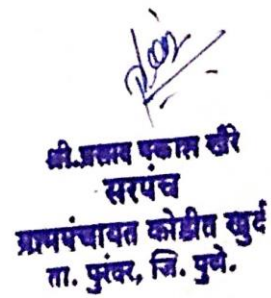 श्री. प्रसाद प्रकाश खैरे
सरपंच
ग्रामपंचायत कोडीत खुर्द
ता. पुरंदर, जि. पुणे.